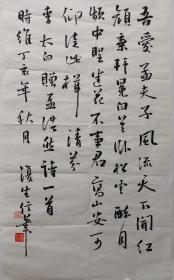 吾愛孟夫子風流天下聞紅
顏棄軒冕白首臥松雲醉月
頻中聖迷花不事君高山安可
仰徒此揖清芬
李太白贈孟浩然詩一首
時維丁亥年秋月
復生信筆